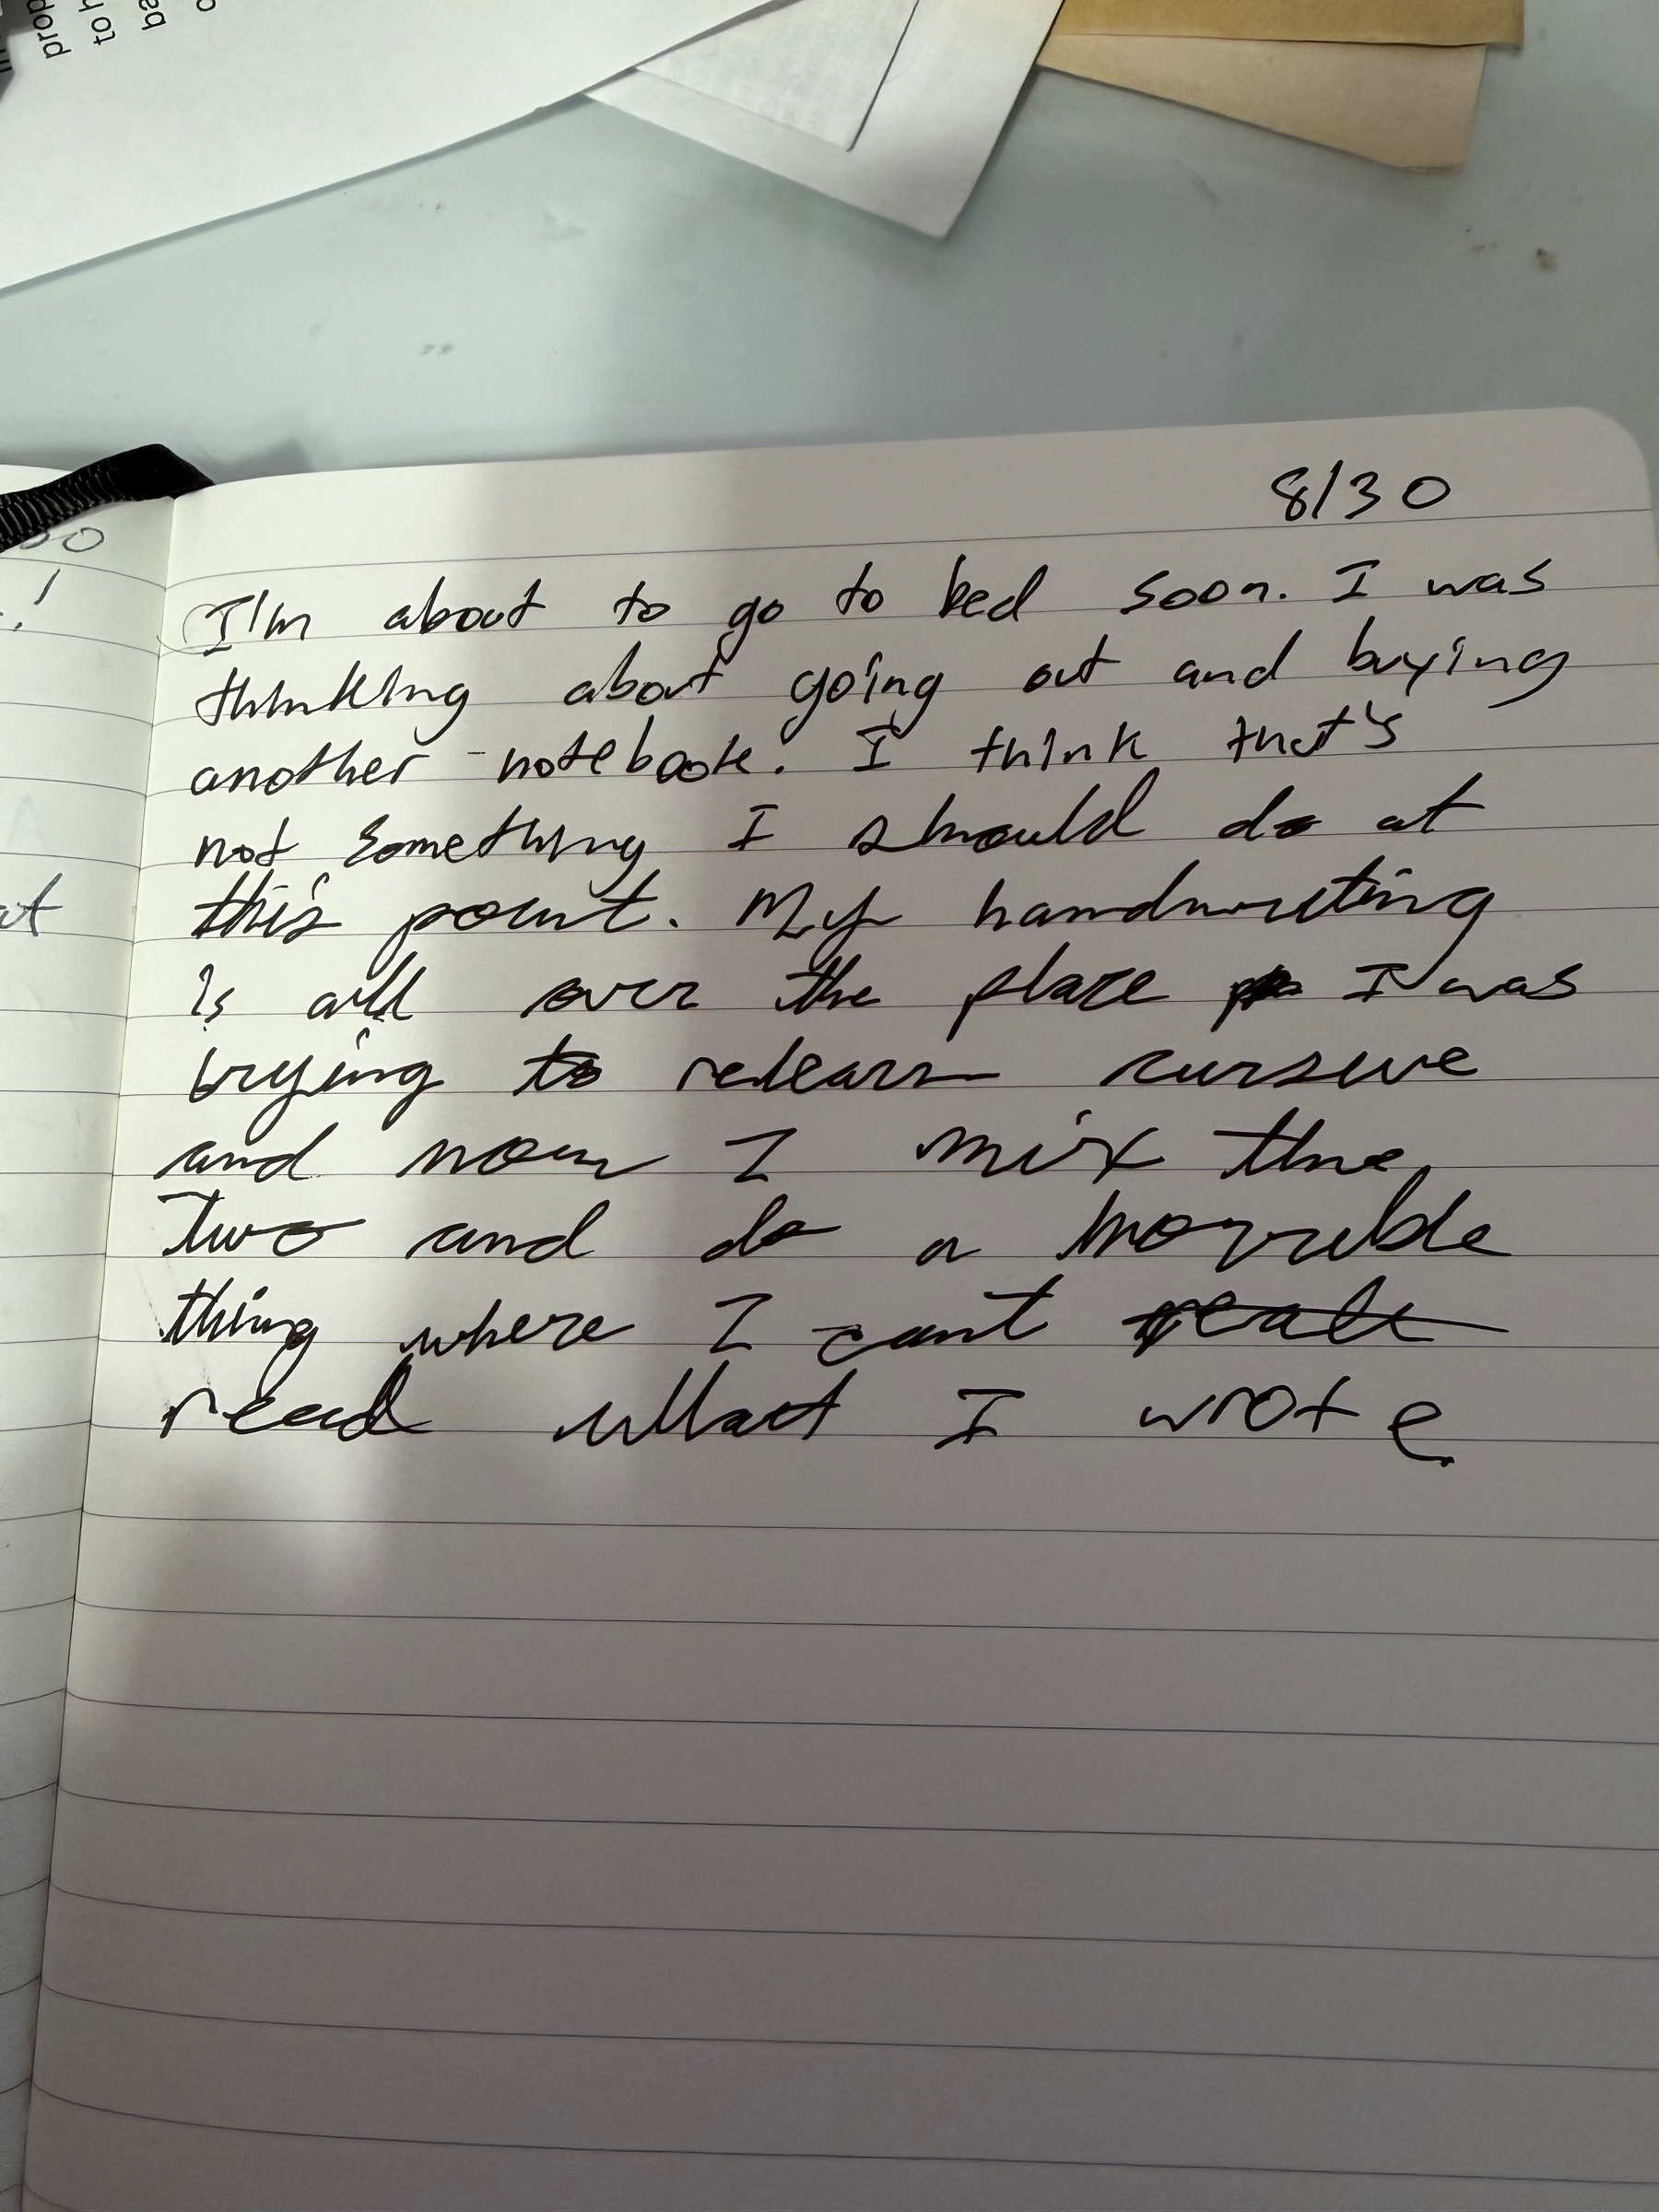 prop
to h
be
8/30
I'm about to go to bed soon. I was
thinking about going out and buying
another notebook. I think that's
not something I should do at
this point. My handwriting
is all over the place I was
trying to relearn cursive
and now I mix the
Two and do a horrible
thing where I cant
read what I wrote.